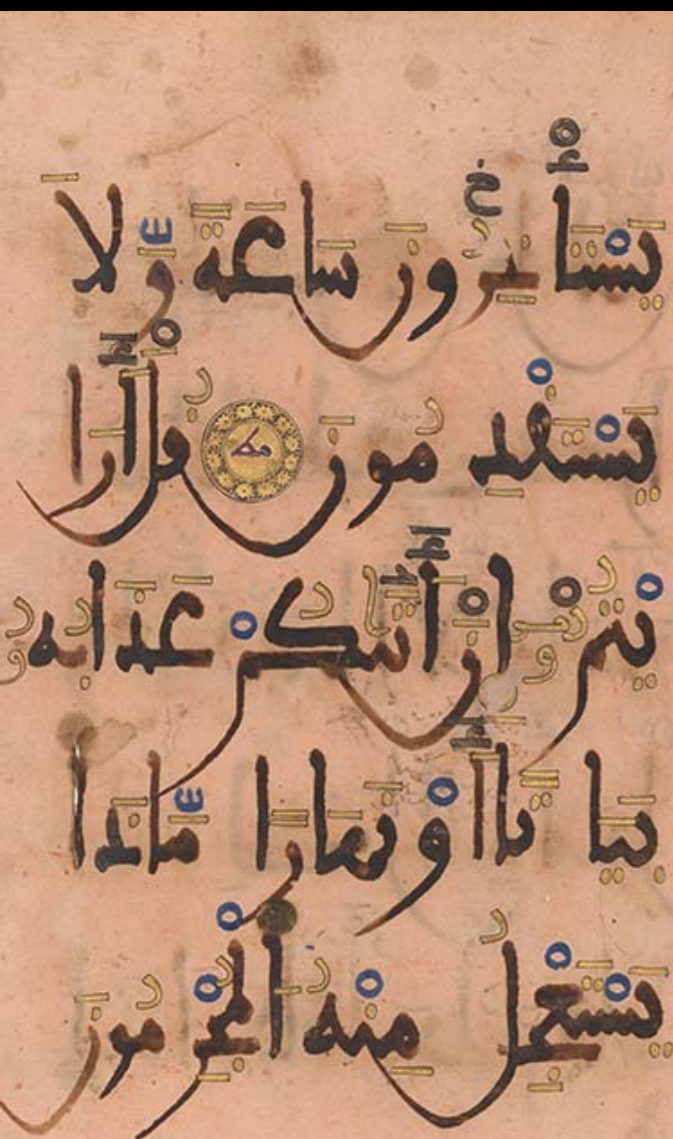 يَسْتَأْخِرُونَ سَاعَةً وَّلَا
يَسْتَقْدِمُونَ مط قُلْ أَرَا
يْتُمْ إِنْ أَتَىٰكُمْ عَذَابُهُ
بَيَاتًا أَوْ نَهَارًا مَّاذَا
يَسْتَعْجِلُ مِنْهُ الْمُجْرِمُونَ